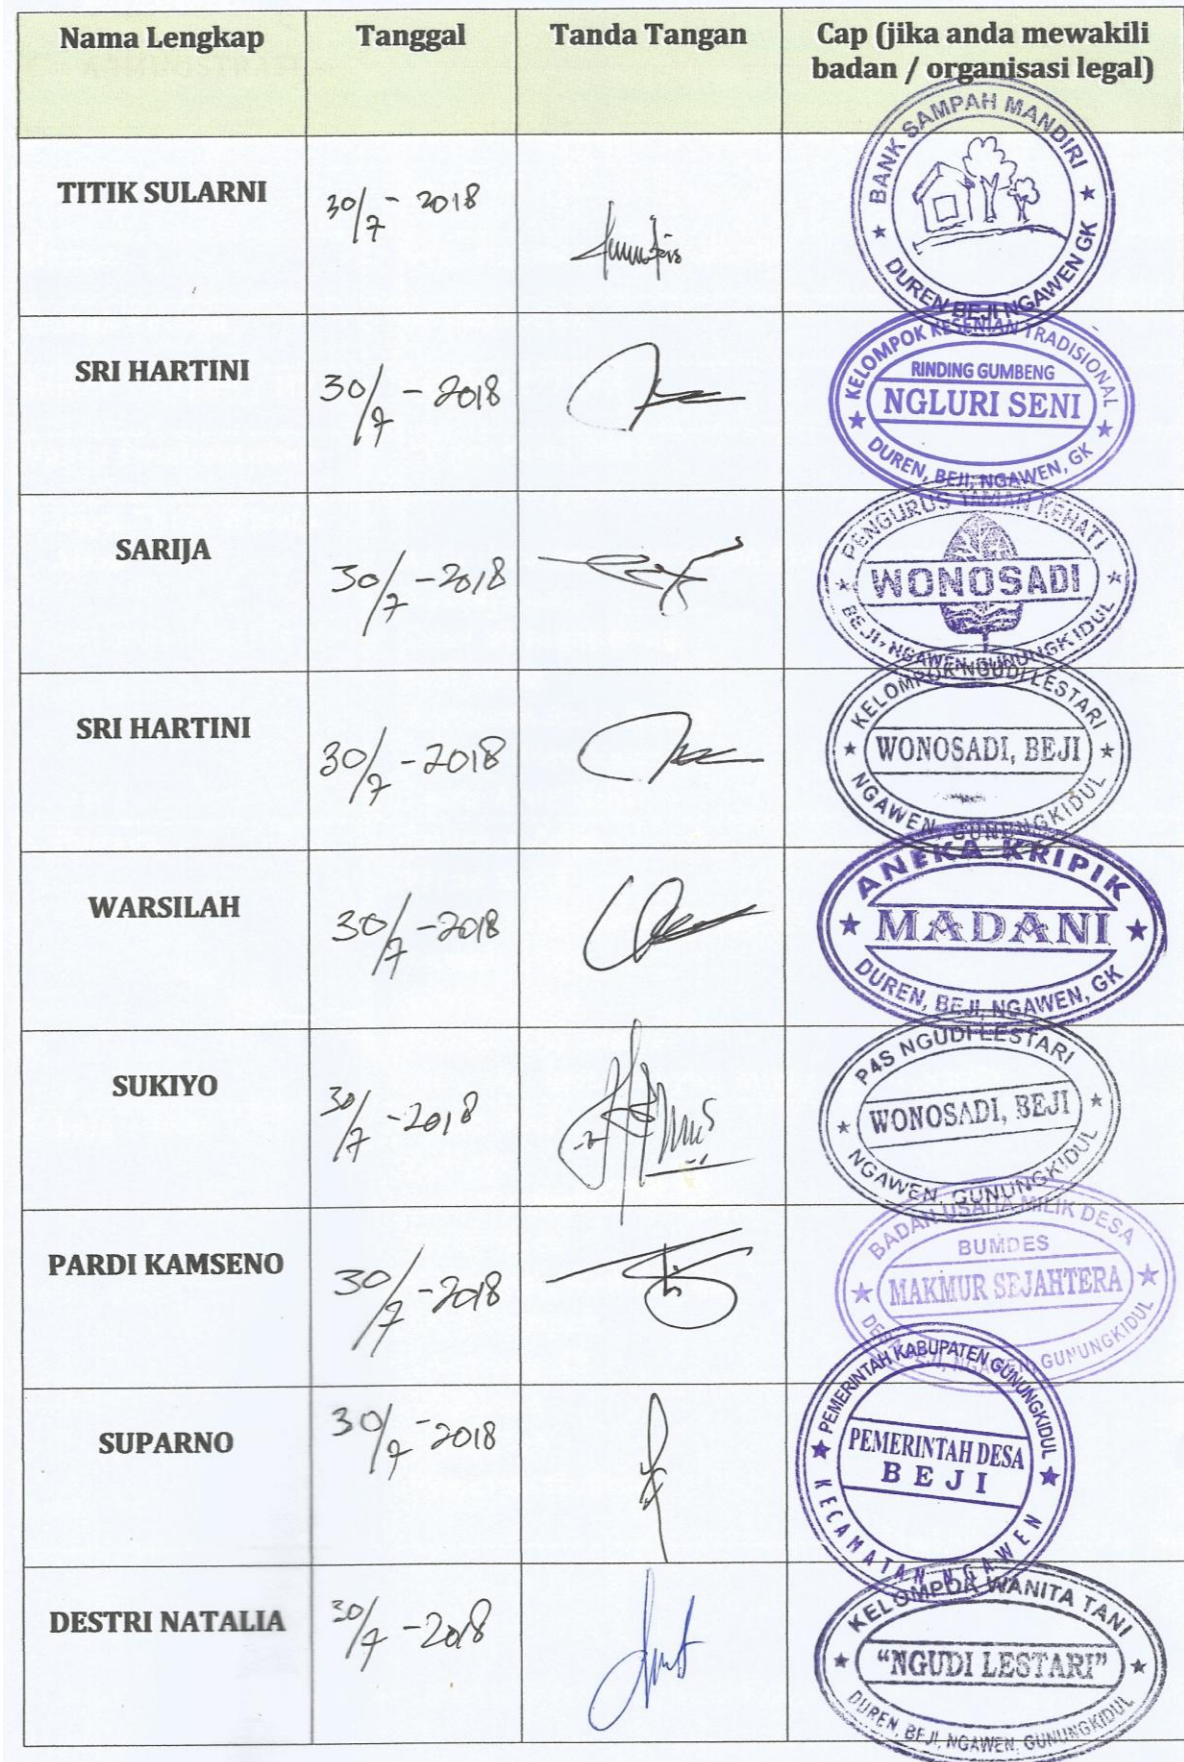 Nama Lengkap
Tanggal
Tanda Tangan
Cap (jika anda mewakili
badan / organisasi legal)
TITIK SULARNI
30/7 - 2018
BANK SAMPAH MANDIRI
DUREN BEJI NGAWEN GK
SRI HARTINI
30/7 - 2018
KELOMPOK KESENIAN TRADISIONAL
RINDING GUMBENG
NGLURI SENI
DUREN, BEJI, NGAWEN, GK
SARIJA
30/7 - 2018
PENGURUS TAMAN KEHATI
WONOSADI
BEJI, NGAWEN, GUNUNGKIDUL
SRI HARTINI
30/7 - 2018
KELOMPOK NGUDI LESTARI
WONOSADI, BEJI
NGAWEN, GUNUNGKIDUL
WARSILAH
30/7 - 2018
ANEKA KRIPIK
MADANI
DUREN, BEJI, NGAWEN, GK
SUKIYO
30/7 - 2018
P4S NGUDI LESTARI
WONOSADI, BEJI
NGAWEN, GUNUNGKIDUL
PARDI KAMSENO
30/7 - 2018
BADAN USAHA MILIK DESA
BUMDES
MAKMUR SEJAHTERA
DESA BEJI, NGAWEN, GUNUNGKIDUL
SUPARNO
30/7 - 2018
PEMERINTAH KABUPATEN GUNUNGKIDUL
PEMERINTAH DESA
BEJI
KECAMATAN NGAWEN
DESTRI NATALIA
30/7 - 2018
KELOMPOK WANITA TANI
"NGUDI LESTARI"
DUREN, BEJI, NGAWEN, GUNUNGKIDUL